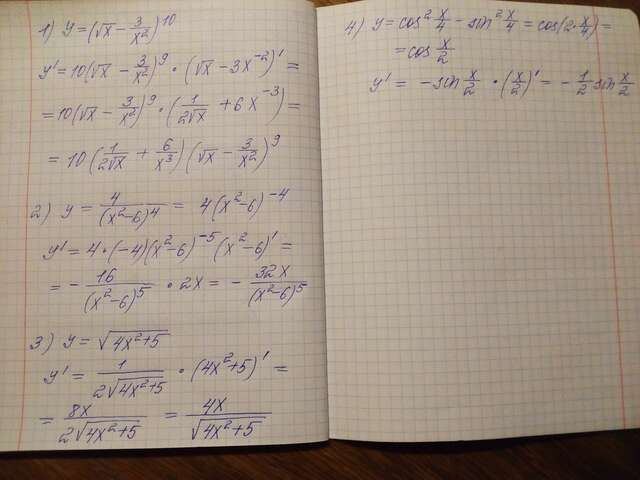 1) y = (√x − 3/x²)¹⁰
y' = 10(√x − 3/x²)⁹ · (√x − 3x⁻²)' =
= 10(√x − 3/x²)⁹ · (1/(2√x) + 6x⁻³) =
= 10(1/(2√x) + 6/x³)(√x − 3/x²)⁹
2) y = 4/(x²−6)⁴ = 4(x²−6)⁻⁴
y' = 4·(−4)(x²−6)⁻⁵(x²−6)' =
= − 16/(x²−6)⁵ · 2x = − 32x/(x²−6)⁵
3) y = √(4x²+5)
y' = 1/(2√(4x²+5)) · (4x²+5)' =
= 8x/(2√(4x²+5)) = 4x/√(4x²+5)
4) y = cos² x/4 − sin² x/4 = cos(2·x/4) =
= cos x/2
y' = −sin x/2 · (x/2)' = − 1/2 sin x/2